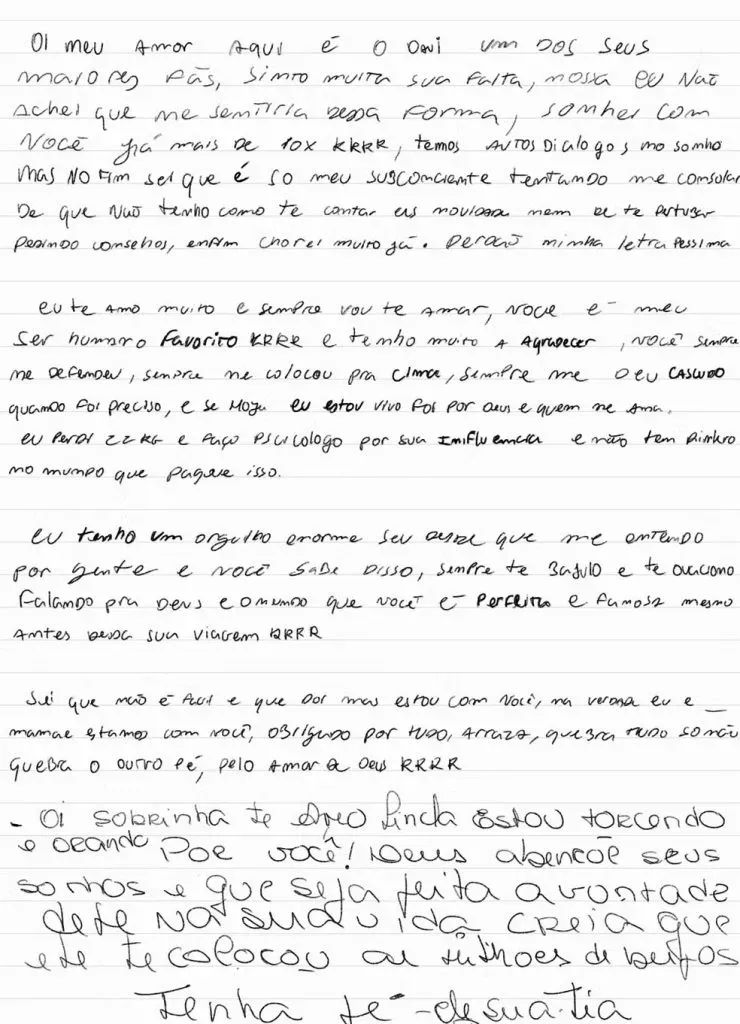 OI meu Amor AQUI é o Davi um DOS seus
maiores Fãs, Sinto muita sua Falta, nossa eu Não
Achei que me sentiria dessa Forma, sonhei com
Você já mais de 10x KRRR, temos AUTOS Dialogos no sonho
mas NO Fim sei que é só meu SUBSCONCIENTE tentando me consolar
De que Não tenho como te contar as novidade nem de te Pertubar
Pedindo conselhos, enfim chorei muito já. Perdaõ minha letra Pessima
eu te Amo muito e sempre vou te Amar, você é meu
Ser humano Favorito KRRR e tenho muito A Agradecer, você sempre
me Defendeu, sempre me colocou pra cima, sempre me Deu CASCUDO
quando Foi preciso, e se Hoje eu estou vivo Foi por Deus e quem me Ama.
eu Perdi 22 KG e Faço Psicologo por sua Imfluencia e não tem Dinheiro
no mundo que pague isso.
eu tenho um orgulho enorme seu desde que me entendo
por gente e você SABE DISSO, sempre te Bajulo e te
Falando pra Deus e o mundo que você é Perfeita e Famosa mesmo
Antes dessa sua viagem KRRR
Sei que não é Facil e que Dói mas estou com Você, na verdade eu e
mamãe estamos com você, OBrigado por tudo, Arraza, queBra tudo só não
queBra o outro Pé, pelo Amor de Deus KRRR
- Oi sobrinha te Amo linda Estou torcendo
e orando Por você! Deus abençoe seus
sonhos e que seja feita a vontade
dele Na sua vida creia que
ele te colocou aí milhoes de beijos
Tenha fé - de sua tia